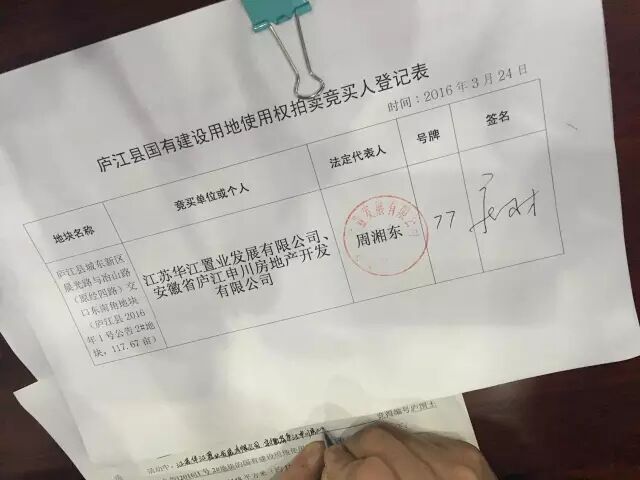 庐江县国有建设用地使用权拍卖竞买人登记表
时间：2016年3月24日
地块名称
竞买单位或个人
法定代表人
号牌
签名
庐江县城东新区
晨光路与冶山路
（原经四路）交
口东南角地块
（庐江县2016
年1号公告2#地
块，117.67亩）
江苏华江置业发展有限公司、
安徽省庐江申川房地产开发
有限公司
周湘东
77
发展有限公
竞得编号庐国土
江苏华江置业发展有限公司